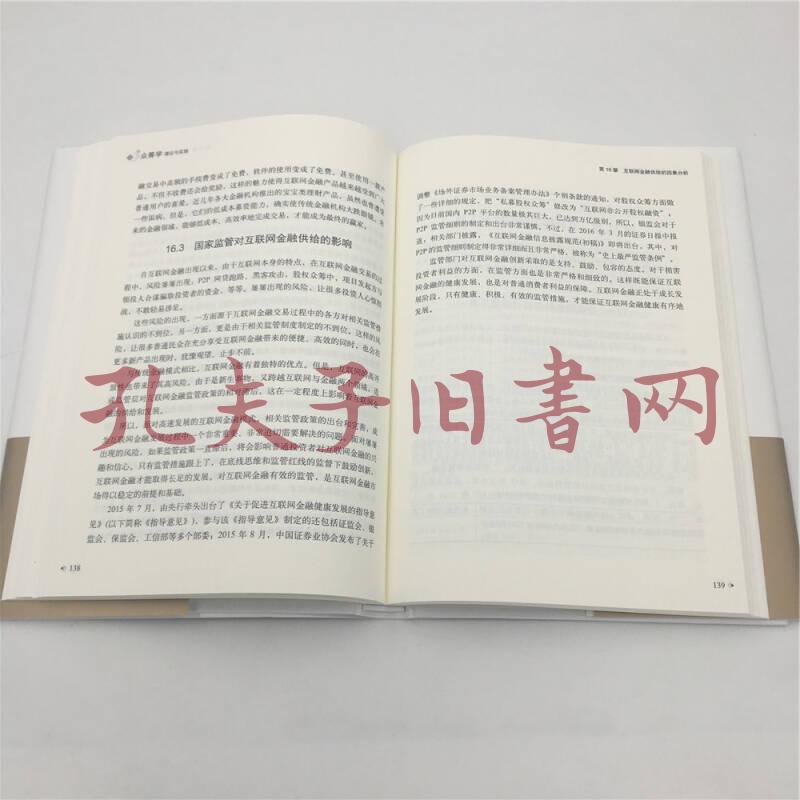 众筹学 理论与实践
融交易中高额的手续费变成了免费，软件的使用变成了免费，甚至使用一款产
品，不但不收费还会给奖励，这样的魅力使得互联网金融产品越来越受到广大
普通用户的喜爱。近几年各大金融机构推出的宝宝类理财产品，虽然也曾遭受
一些诟病，但是，它们的低成本募资能力，确实使传统金融机构大跌眼镜。未
来的金融领域，能够低成本、高效率地完成交易，才能成为最终的赢家。
16.3 国家监管对互联网金融供给的影响
自互联网金融出现以来，由于互联网本身的特点，在互联网金融交易的过
程中，风险屡屡出现：P2P 网贷跑路、黑客攻击、股权众筹中，项目发起方与
领投人合谋骗取投资者的资金，等等。屡屡出现的风险，让很多投资人心惊胆
战，不敢轻易涉足。
这些风险的出现，一方面源于互联网金融交易过程中的各方对相关监管措
施认识的不到位，另一方面，更是由于相关监管制度制定的不到位。这样的风
险，让很多普通民众在充分享受互联网金融带来的便捷、高效的同时，也会在
更多新产品出现时，犹豫观望，止步不前。
与传统金融模式相比，互联网金融有着独特的优点。但是，互联网的高开
放性也带来了高风险。由于是新生事物，又跨越互联网与金融两个领域，造
成监管层对互联网金融监管政策的相对滞后，这在一定程度上影响着互联网金
融的供给和发展。
所以，面对高速发展的互联网金融模式，相关监管政策的出台和完善，成
为互联网金融发展过程中一个非常重要、非常迫切需要解决的问题，面对屡屡
出现的风险，如果监管政策一直滞后，将会影响普通投资者对互联网金融的兴
趣和信心。只有监管措施跟上了，在底线思维和监管红线的监督下鼓励创新，
互联网金融才能取得长足的发展。对互联网金融有效的监管，是互联网金融市
场得以稳定的前提和基础。
2015 年 7 月，由央行牵头出台了《关于促进互联网金融健康发展的指导意
见》(以下简称《指导意见》)，参与该《指导意见》制定的还包括证监会、银
监会、保监会、工信部等多个部委；2015 年 8 月，中国证券业协会发布了关于
138
第 16 章 互联网金融供给的因素分析
调整《场外证券市场业务备案管理办法》个别条款的通知，对股权众筹方面做
了一些详细的规定，把“私募股权众筹”修改为“互联网非公开股权融资”，
因为目前国内 P2P 平台的数量极其巨大，已达到万亿级别，所以，银监会对于
P2P 监管细则的制定和出台非常谨慎。不过，在 2016 年 3 月的证券日报中报
道，相关部门披露，《互联网金融信息披露规范(初稿)》即将出台。其中，对
P2P 的监管细则制定得非常详细而且非常严格，被称为“史上最严监管条例”。
监管部门对互联网金融创新采取的是支持、鼓励、包容的态度，对于损害
投资者利益的方面，在监管方面也是非常严格和细致的。这样既能保证互联
网金融的健康发展，也是对普通消费者利益的保障。互联网金融正处于成长发
展阶段，只有健康、积极、有效的监管措施，才能保证互联网金融健康有序地
发展。
139
孔夫子旧书网